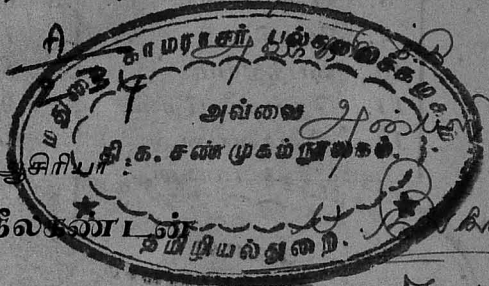 மதுரை காமராசர் பல்கலைக்கழகம்
அவ்வை
தி. க. சண்முகம் நூலகம்.
ஆசிரியர் :
நீலகண்டன்
தமிழியல்துறை.